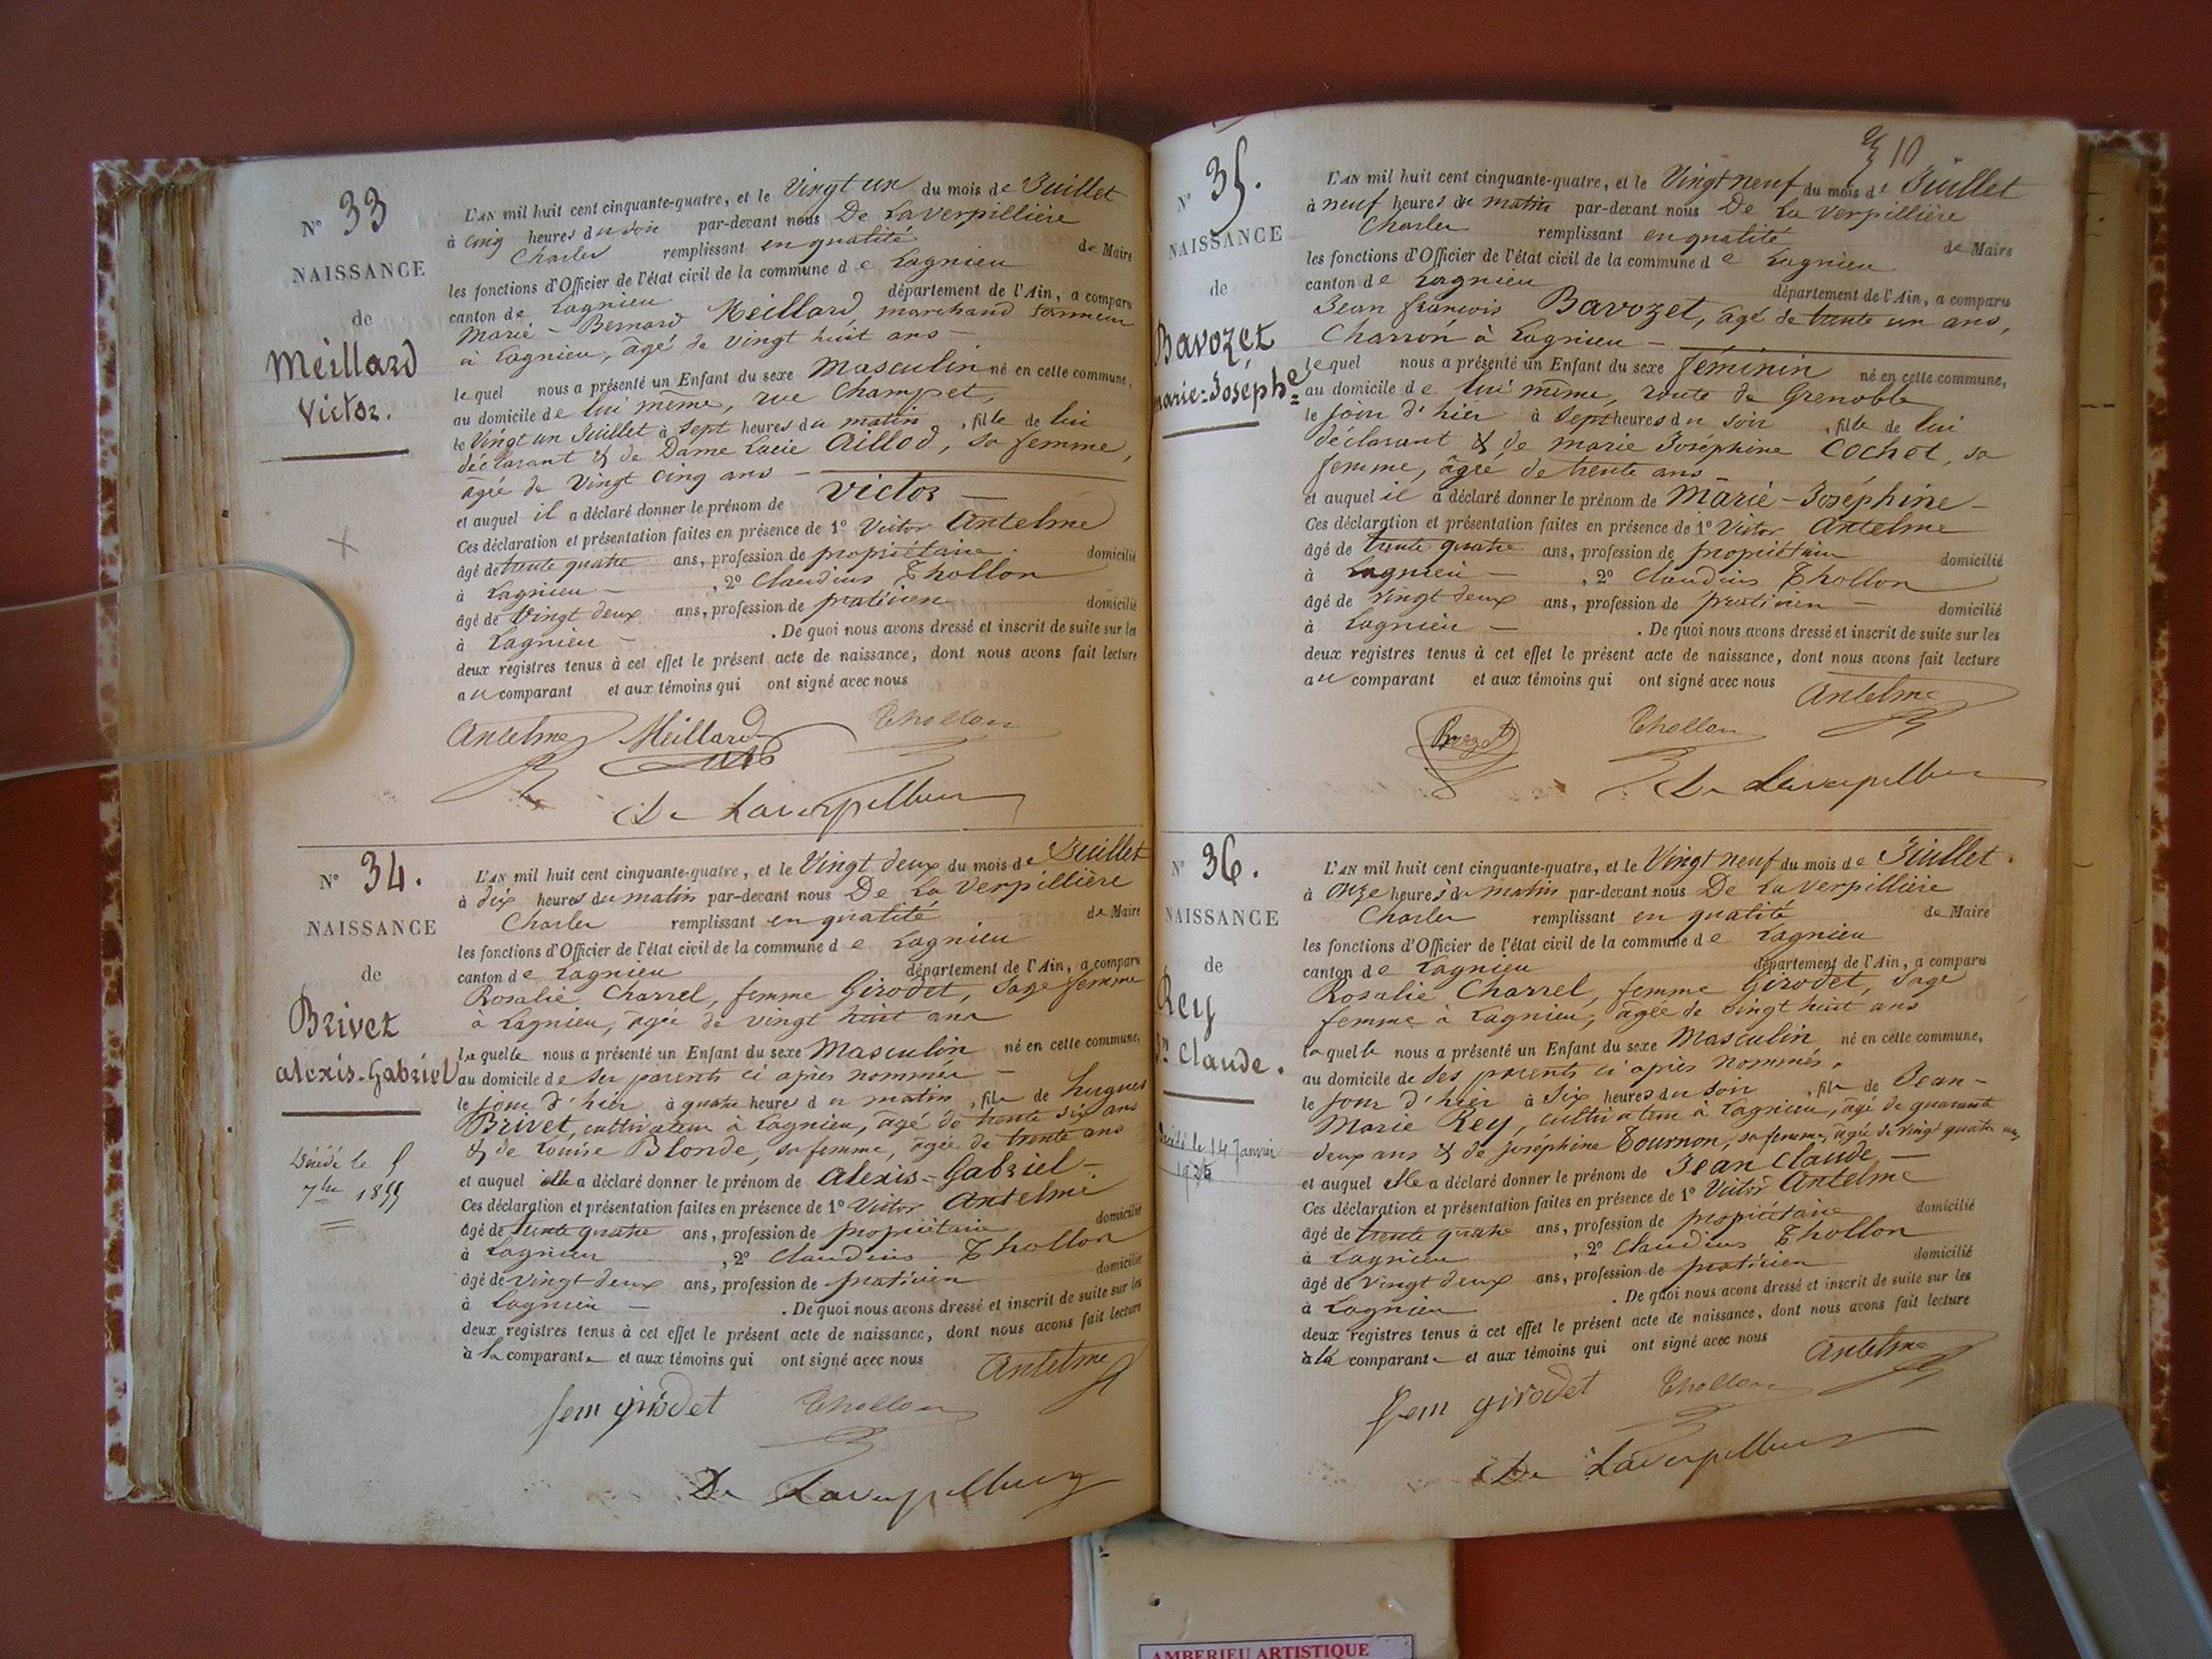 N° 33
NAISSANCE
de
Meillard
Victor.
L'AN mil huit cent cinquante-quatre, et le Vingt un du mois de Juillet
à cinq heures du soir par-devant nous De Laverpillière
Charles remplissant en qualité de Maire
les fonctions d'Officier de l'état civil de la commune de Lagnieu
canton de Lagnieu département de l'Ain, a comparu
Marie-Bernard Meillard marchand tanneur
à Lagnieu, âgé de vingt huit ans
lequel nous a présenté un Enfant du sexe Masculin né en cette commune,
au domicile de lui même, rue Champet,
le Vingt un Juillet à Sept heures du matin, fils de lui
déclarant & de Dame Lucie Aillod, sa femme,
âgée de Vingt cinq ans
et auquel il a déclaré donner le prénom de Victor
Ces déclaration et présentation faites en présence de 1° Victor Antelme
âgé de trente quatre ans, profession de propriétaire domicilié
à Lagnieu, 2° Claudius Thollon
âgé de Vingt deux ans, profession de praticien domicilié
à Lagnieu. De quoi nous avons dressé et inscrit de suite sur les
deux registres tenus à cet effet le présent acte de naissance, dont nous avons fait lecture
au comparant et aux témoins qui ont signé avec nous
Antelme Meillard Thollon
De Laverpillière
N° 34.
NAISSANCE
de
Brivet
Alexis-Gabriel
Décédé le 5
7bre 1855
L'AN mil huit cent cinquante-quatre, et le Vingt deux du mois de Juillet
à dix heures du matin par-devant nous De La Verpillière
Charles remplissant en qualité de Maire
les fonctions d'Officier de l'état civil de la commune de Lagnieu
canton de Lagnieu département de l'Ain, a comparu
Rosalie Charrel, femme Girodet, Sage femme
à Lagnieu, âgée de vingt huit ans
laquelle nous a présenté un Enfant du sexe Masculin né en cette commune,
au domicile de ses parents ci après nommés
le jour d'hier à quatre heures du matin, fils de hugues
Brivet, cultivateur à Lagnieu, âgé de trente six ans
& de Louise Blonde, sa femme, âgée de trente ans
et auquel elle a déclaré donner le prénom de Alexis-Gabriel
Ces déclaration et présentation faites en présence de 1° Victor Antelme
âgé de trente quatre ans, profession de propriétaire domicilié
à Lagnieu, 2° Claudius Thollon
âgé de vingt deux ans, profession de praticien domicilié
à Lagnieu. De quoi nous avons dressé et inscrit de suite sur les
deux registres tenus à cet effet le présent acte de naissance, dont nous avons fait lecture
à la comparante et aux témoins qui ont signé avec nous
Antelme
fem girodet Thollon
De Laverpillière
10
N° 35.
NAISSANCE
de
Bavozet
Marie-Joséphe
L'AN mil huit cent cinquante-quatre, et le Vingt neuf du mois de Juillet
à neuf heures du matin par-devant nous De La Verpillière
Charles remplissant en qualité de Maire
les fonctions d'Officier de l'état civil de la commune de Lagnieu
canton de Lagnieu département de l'Ain, a comparu
Jean françois Bavozet, âgé de trente un ans,
Charron à Lagnieu
lequel nous a présenté un Enfant du sexe féminin né en cette commune,
au domicile de lui même, route de Grenoble
le jour d'hier à Sept heures du soir, fille de lui
déclarant & de marie Joséphine Cochet, sa
femme, âgée de trente ans
et auquel il a déclaré donner le prénom de Marie-Joséphine
Ces déclaration et présentation faites en présence de 1° Victor Antelme
âgé de trente quatre ans, profession de propriétaire domicilié
à Lagnieu, 2° Claudius Thollon
âgé de vingt deux ans, profession de praticien domicilié
à Lagnieu. De quoi nous avons dressé et inscrit de suite sur les
deux registres tenus à cet effet le présent acte de naissance, dont nous avons fait lecture
au comparant et aux témoins qui ont signé avec nous
Antelme
Thollon
De Laverpillière
N° 36.
NAISSANCE
de
Rey
Jn Claude.
Décédé le 14 Janvier
L'AN mil huit cent cinquante-quatre, et le Vingt neuf du mois de Juillet.
à Onze heures du matin par-devant nous De Laverpillière
Charles remplissant en qualité de Maire
les fonctions d'Officier de l'état civil de la commune de Lagnieu
canton de Lagnieu département de l'Ain, a comparu
Rosalie Charrel, femme Girodet, Sage
femme à Lagnieu, âgée de vingt huit ans
laquelle nous a présenté un Enfant du sexe Masculin né en cette commune,
au domicile de ses parents ci après nommés.
le jour d'hier à Six heures du soir, fils de Jean-
Marie Rey, Cultivateur à Lagnieu, âgé de quarante
deux ans & de Joséphine Tournon, sa femme, âgée de vingt quatre ans,
et auquel elle a déclaré donner le prénom de Jean Claude
Ces déclaration et présentation faites en présence de 1° Victor Antelme
âgé de trente quatre ans, profession de propriétaire domicilié
à Lagnieu, 2° Claudius Thollon
âgé de Vingt deux ans, profession de praticien domicilié
à Lagnieu. De quoi nous avons dressé et inscrit de suite sur les
deux registres tenus à cet effet le présent acte de naissance, dont nous avons fait lecture
à la comparante et aux témoins qui ont signé avec nous
Antelme
fem girodet Thollon
De Laverpillière
AMBERIEU ARTISTIQUE